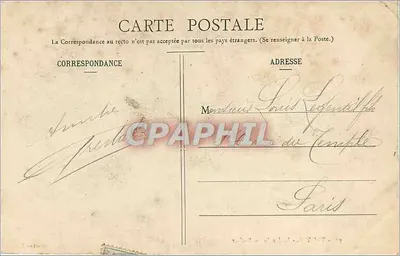 CARTE POSTALE
La Correspondance au recto n'est pas acceptée par tous les pays étrangers. (Se renseigner à la Poste.)
CORRESPONDANCE
ADRESSE
Monsieur Louis
CPAPHIL
du Temple
Paris